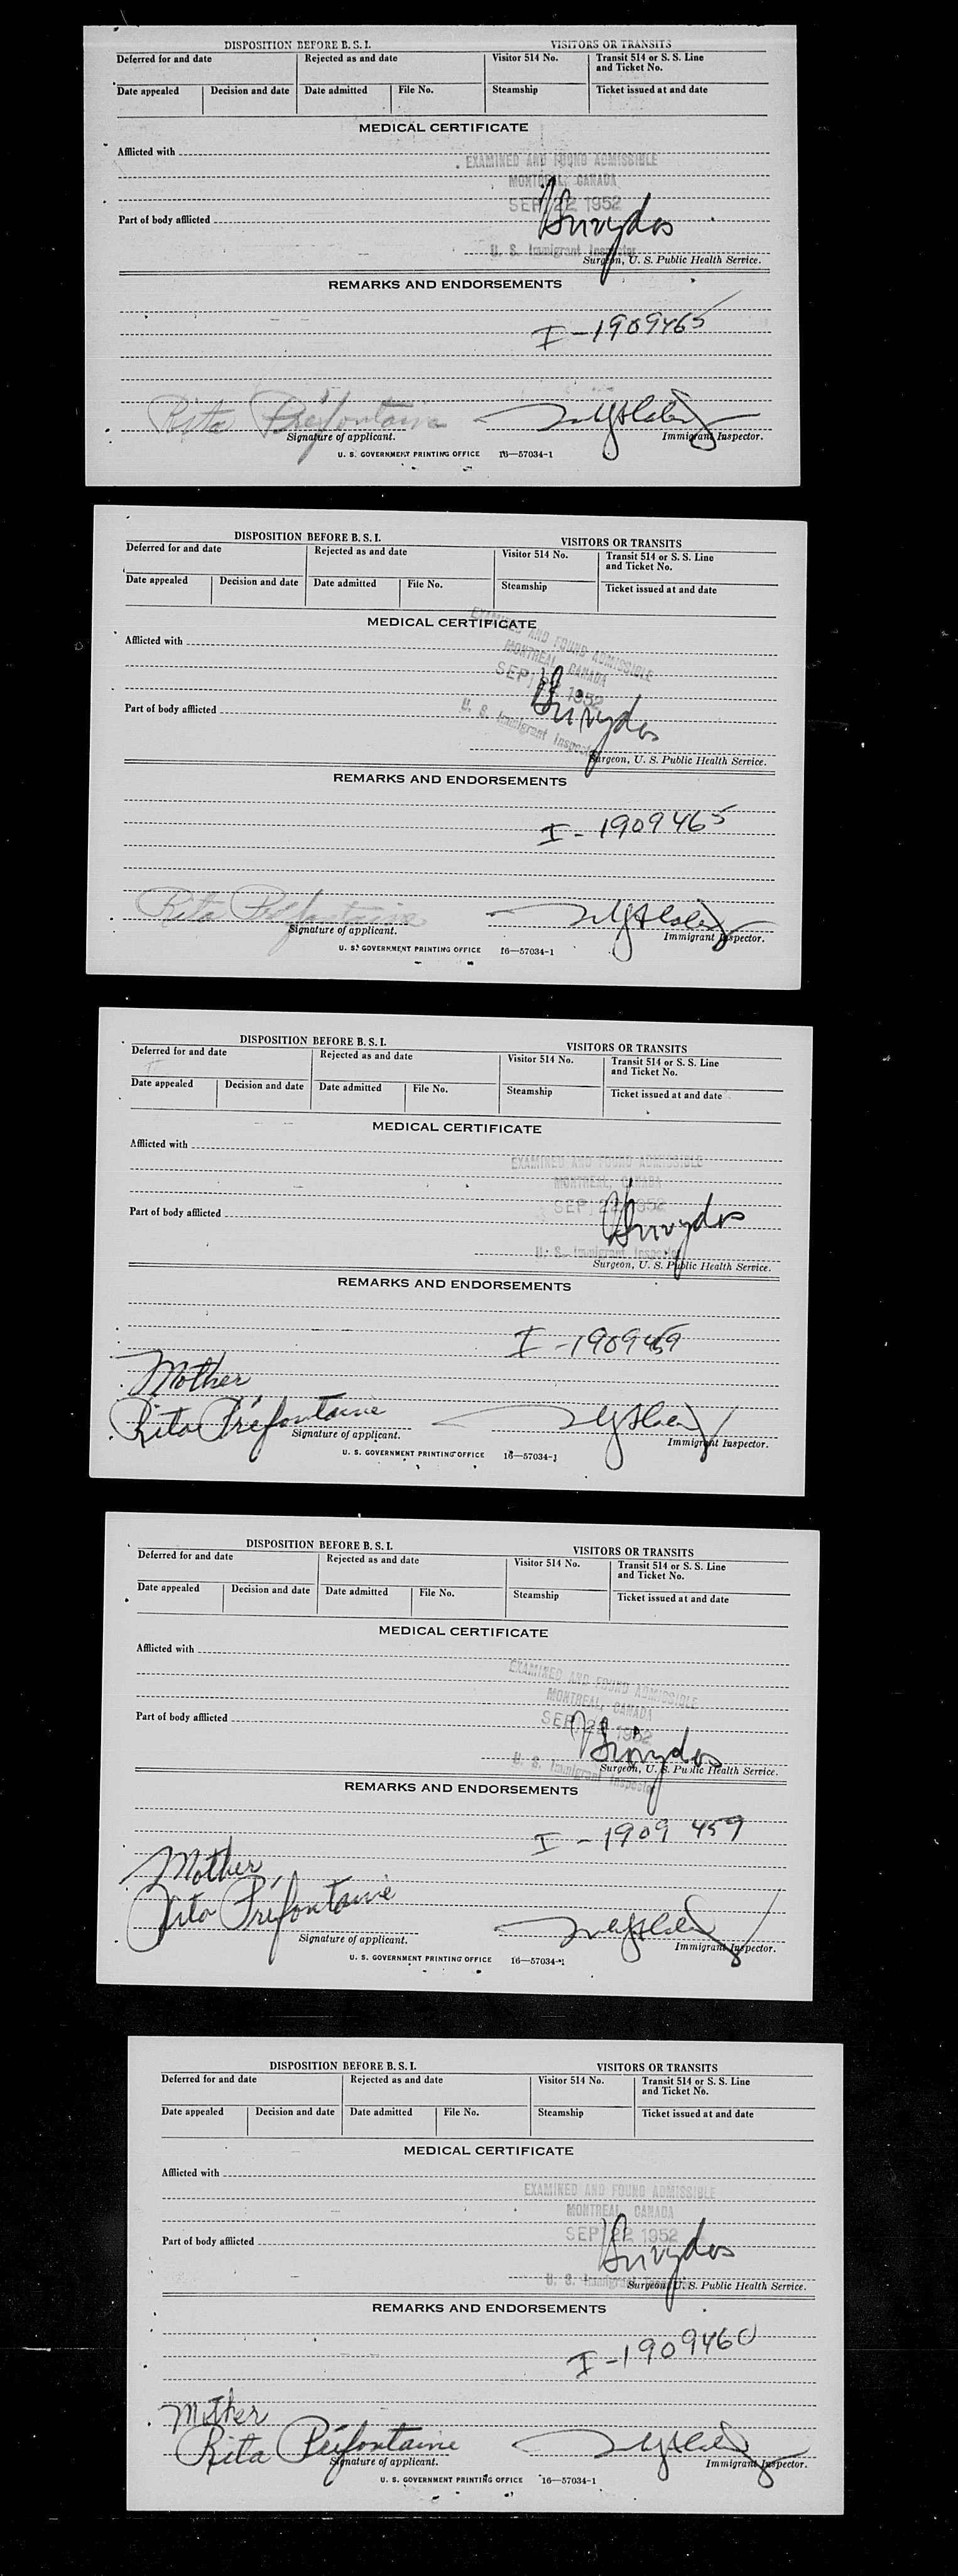 DISPOSITION BEFORE B. S. I. VISITORS OR TRANSITS
Deferred for and date Rejected as and date Visitor 514 No. Transit 514 or S. S. Line
and Ticket No.
Date appealed Decision and date Date admitted File No. Steamship Ticket issued at and date
MEDICAL CERTIFICATE
Afflicted with
EXAMINED AND FOUND ADMISSIBLE
MONTREAL, CANADA
SEP 22 1952
Part of body afflicted
U. S. Immigrant Inspector
Surgeon, U. S. Public Health Service.
REMARKS AND ENDORSEMENTS
I-1909465
Rita Préfontaine
Signature of applicant. Immigrant Inspector.
U. S. GOVERNMENT PRINTING OFFICE 16—57034-1
DISPOSITION BEFORE B. S. I. VISITORS OR TRANSITS
Deferred for and date Rejected as and date Visitor 514 No. Transit 514 or S. S. Line
and Ticket No.
Date appealed Decision and date Date admitted File No. Steamship Ticket issued at and date
MEDICAL CERTIFICATE
EXAMINED AND FOUND ADMISSIBLE
Afflicted with
MONTREAL, CANADA
SEP 22 1952
Part of body afflicted
U. S. Immigrant Inspector
Surgeon, U. S. Public Health Service.
REMARKS AND ENDORSEMENTS
I-1909465
Rita Préfontaine
Signature of applicant. Immigrant Inspector.
U. S. GOVERNMENT PRINTING OFFICE 16—57034-1
DISPOSITION BEFORE B. S. I. VISITORS OR TRANSITS
Deferred for and date Rejected as and date Visitor 514 No. Transit 514 or S. S. Line
and Ticket No.
Date appealed Decision and date Date admitted File No. Steamship Ticket issued at and date
MEDICAL CERTIFICATE
Afflicted with
EXAMINED AND FOUND ADMISSIBLE
MONTREAL, CANADA
SEP 22 1952
Part of body afflicted
U. S. Immigrant Inspector
Surgeon, U. S. Public Health Service.
REMARKS AND ENDORSEMENTS
I-1909459
Mother
Rita Préfontaine
Signature of applicant. Immigrant Inspector.
U. S. GOVERNMENT PRINTING OFFICE 16—57034-1
DISPOSITION BEFORE B. S. I. VISITORS OR TRANSITS
Deferred for and date Rejected as and date Visitor 514 No. Transit 514 or S. S. Line
and Ticket No.
Date appealed Decision and date Date admitted File No. Steamship Ticket issued at and date
MEDICAL CERTIFICATE
Afflicted with
EXAMINED AND FOUND ADMISSIBLE
MONTREAL, CANADA
SEP 22 1952
Part of body afflicted
U. S. Immigrant Inspector
Surgeon, U. S. Public Health Service.
REMARKS AND ENDORSEMENTS
I-1909 459
Mother,
Rita Préfontaine
Signature of applicant. Immigrant Inspector.
U. S. GOVERNMENT PRINTING OFFICE 16—57034-1
DISPOSITION BEFORE B. S. I. VISITORS OR TRANSITS
Deferred for and date Rejected as and date Visitor 514 No. Transit 514 or S. S. Line
and Ticket No.
Date appealed Decision and date Date admitted File No. Steamship Ticket issued at and date
MEDICAL CERTIFICATE
Afflicted with
EXAMINED AND FOUND ADMISSIBLE
MONTREAL, CANADA
SEP 22 1952
Part of body afflicted
U. S. Immigrant
Surgeon, U. S. Public Health Service.
REMARKS AND ENDORSEMENTS
I-1909460
Mother
Rita Préfontaine
Signature of applicant. Immigrant Inspector.
U. S. GOVERNMENT PRINTING OFFICE 16—57034-1